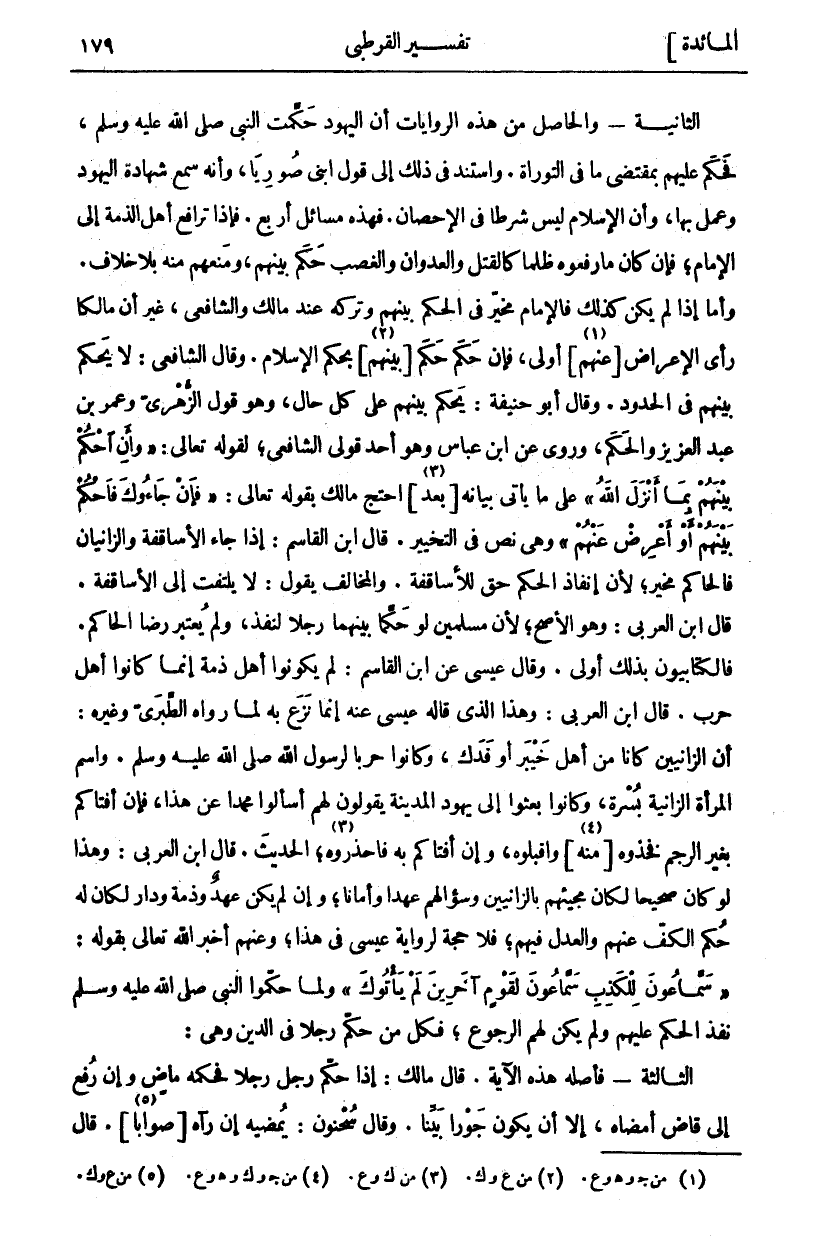 المائدة ] تفسير القرطبى ١٧٩
الثانية — والحاصل من هذه الروايات أن اليهود حَكَّمت النبى صلى الله عليه وسلم ،
فحَكَم عليهم بمقتضى ما فى التوراة . واستند فى ذلك إلى قول ابنى صُورِيَا، وأنه سمع شهادة اليهود
وعمل بها، وأن الإسلام ليس شرطا فى الإحصان. فهذه مسائل أربع . فإذا ترافع أهل الذمة إلى
الإمام؛ فإن كان ما رفعوه ظلما كالقتل والعدوان والغصب حَكَم بينهم، ومنعهم منه بلاخلاف.
وأما إذا لم يكن كذلك فالإمام مخيّر فى الحكم بينهم وتركه عند مالك والشافعى ، غير أن مالكا
رأى الإعراض [عنهم](١) أولى، فإن حَكَم حَكَم [بينهم](٢) بحكم الإسلام . وقال الشافعى : لا يَحكم
بينهم فى الحدود . وقال أبو حنيفة : يَحكم بينهم على كل حال، وهو قول الزُّهْرىّ وعمر بن
عبد العزيز والحَكَم، وروى عن ابن عباس وهو أحد قولى الشافعى؛ لقوله تعالى: « وأَنِ ٱحْكُمْ
بَيْنَهُمْ بِمَا أَنْزَلَ اللهُ » على ما يأتى بيانه [بعد](٣) احتج مالك بقوله تعالى : « فَإِنْ جَاءُوكَ فَاحْكُمْ
بَيْنَهُمْ أَوْ أَعْرِضْ عَنْهُمْ » وهى نص فى التخيير . قال ابن القاسم : إذا جاء الأساقفة والزانيان
فالحاكم مخير؛ لأن إنفاذ الحكم حق للأساقفة . والمخالف يقول : لا يلتفت إلى الأساقفة .
قال ابن العربى : وهو الأصح؛ لأن مسلمين لو حَكَّما بينهما رجلا لنفذ، ولم يُعتبر رضا الحاكم.
فالكتابيون بذلك أولى . وقال عيسى عن ابن القاسم : لم يكونوا أهل ذمة إنما كانوا أهل
حرب . قال ابن العربى : وهذا الذى قاله عيسى عنه إنما نَزَع به لما رواه الطَّبَرىّ وغيره :
أن الزانيين كانا من أهل خَيْبَر أو فَدَك ، وكانوا حربا لرسول الله صلى الله عليه وسلم . واسم
المرأة الزانية بُسْرة، وكانوا بعثوا إلى يهود المدينة يقولون لهم أسألوا محمدا عن هذا، فإن أفتاكم
بغير الرجم فخذوه [منه](٤) واقبلوه، و إن أفتاكم به فاحذروه(٣)؛ الحديثَ . قال ابن العربى : وهذا
لو كان صحيحا لكان مجيئهم بالزانيين وسؤالهم عهدا وأمانا؛ و إن لم يكن عهدٌ وذمة ودار لكان له
حُكم الكفّ عنهم والعدل فيهم؛ فلا حجة لرواية عيسى فى هذا؛ وعنهم أخبر الله تعالى بقوله :
« سَمَّاعُونَ لِلْكَذِبِ سَمَّاعُونَ لِقَوْمٍ آخَرِينَ لَمْ يَأْتُوكَ » ولما حكّموا النبى صلى الله عليه وسلم
نفذ الحكم عليهم ولم يكن لهم الرجوع ؛ فكل من حكّم رجلا فى الدين وهى :
الثالثة — فأصله هذه الآية . قال مالك : إذا حكّم رجل رجلا فحكمه ماضٍ و إن رُفع
إلى قاض أمضاه ، إلا أن يكون جَوْرا بَيِّنا . وقال سُحْنون : يُمضيه إن رآه [صوابا](٥) . قال
(١) من جـ و هـ و ع . (٢) من ع و ك . (٣) من ك و ع . (٤) من جـ و ك و هـ و ع . (٥) من ع و ك .